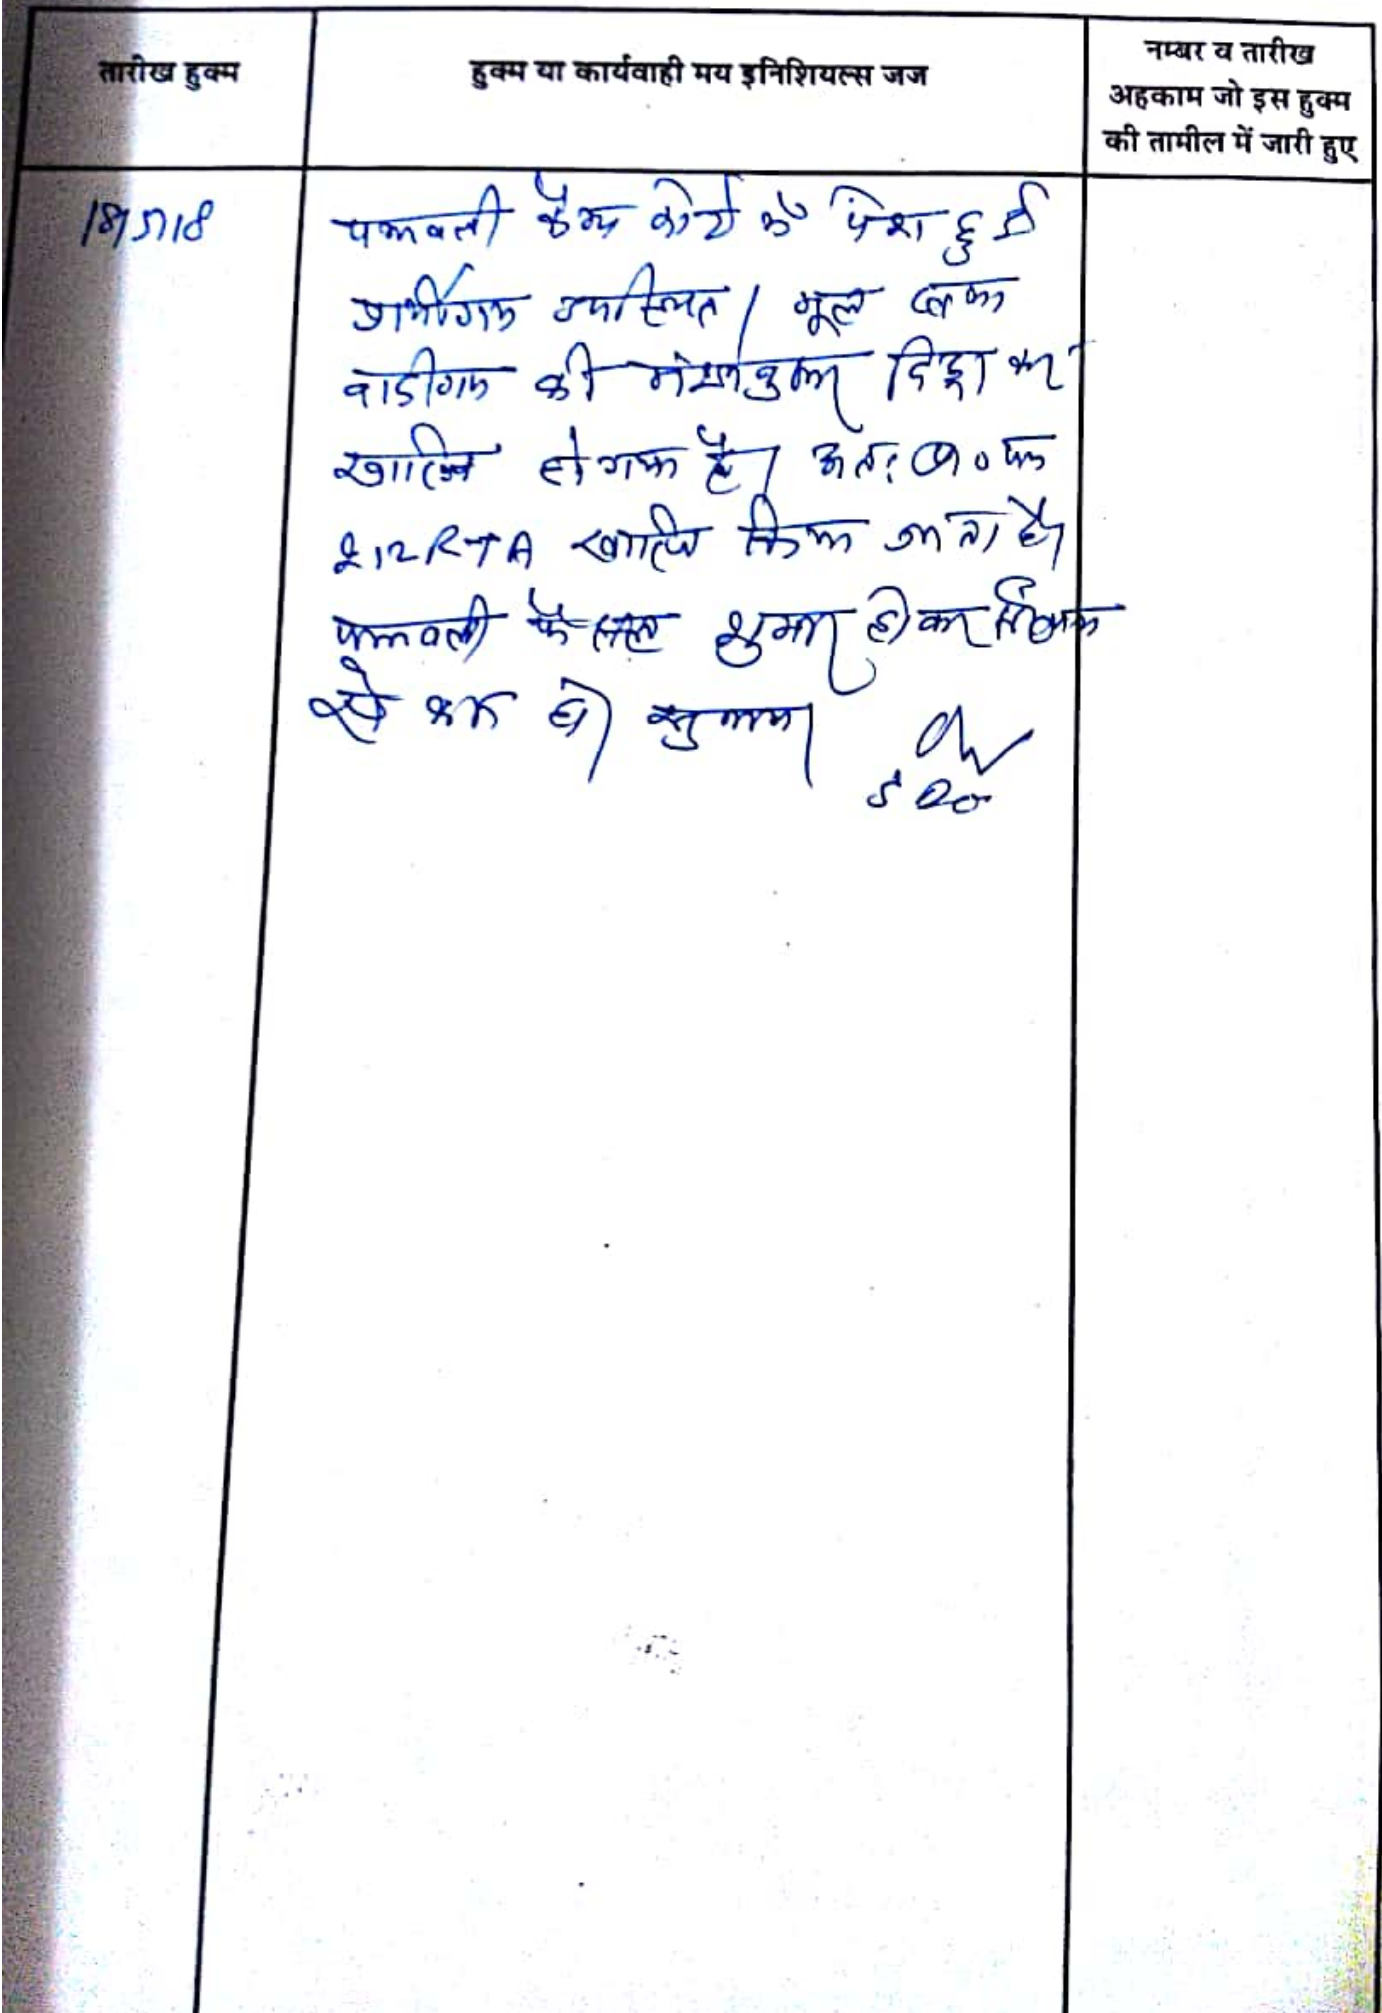 तारीख हुक्म
हुक्म या कार्यवाही मय इनिशियल्स जज
नम्बर व तारीख
अहकाम जो इस हुक्म
की तामील में जारी हुए
18/5/18
पत्रावली कैम्प कोर्ट में पेश हुई
प्रार्थीगण उपस्थित। मूल दावा
वादीगण की विड्रा कर
खारिज हो गया है। अतः प्रा० पत्र
212 RTA खारिज किया जाता है।
पत्रावली फैसल शुमार होकर
से कम हो।
SDO